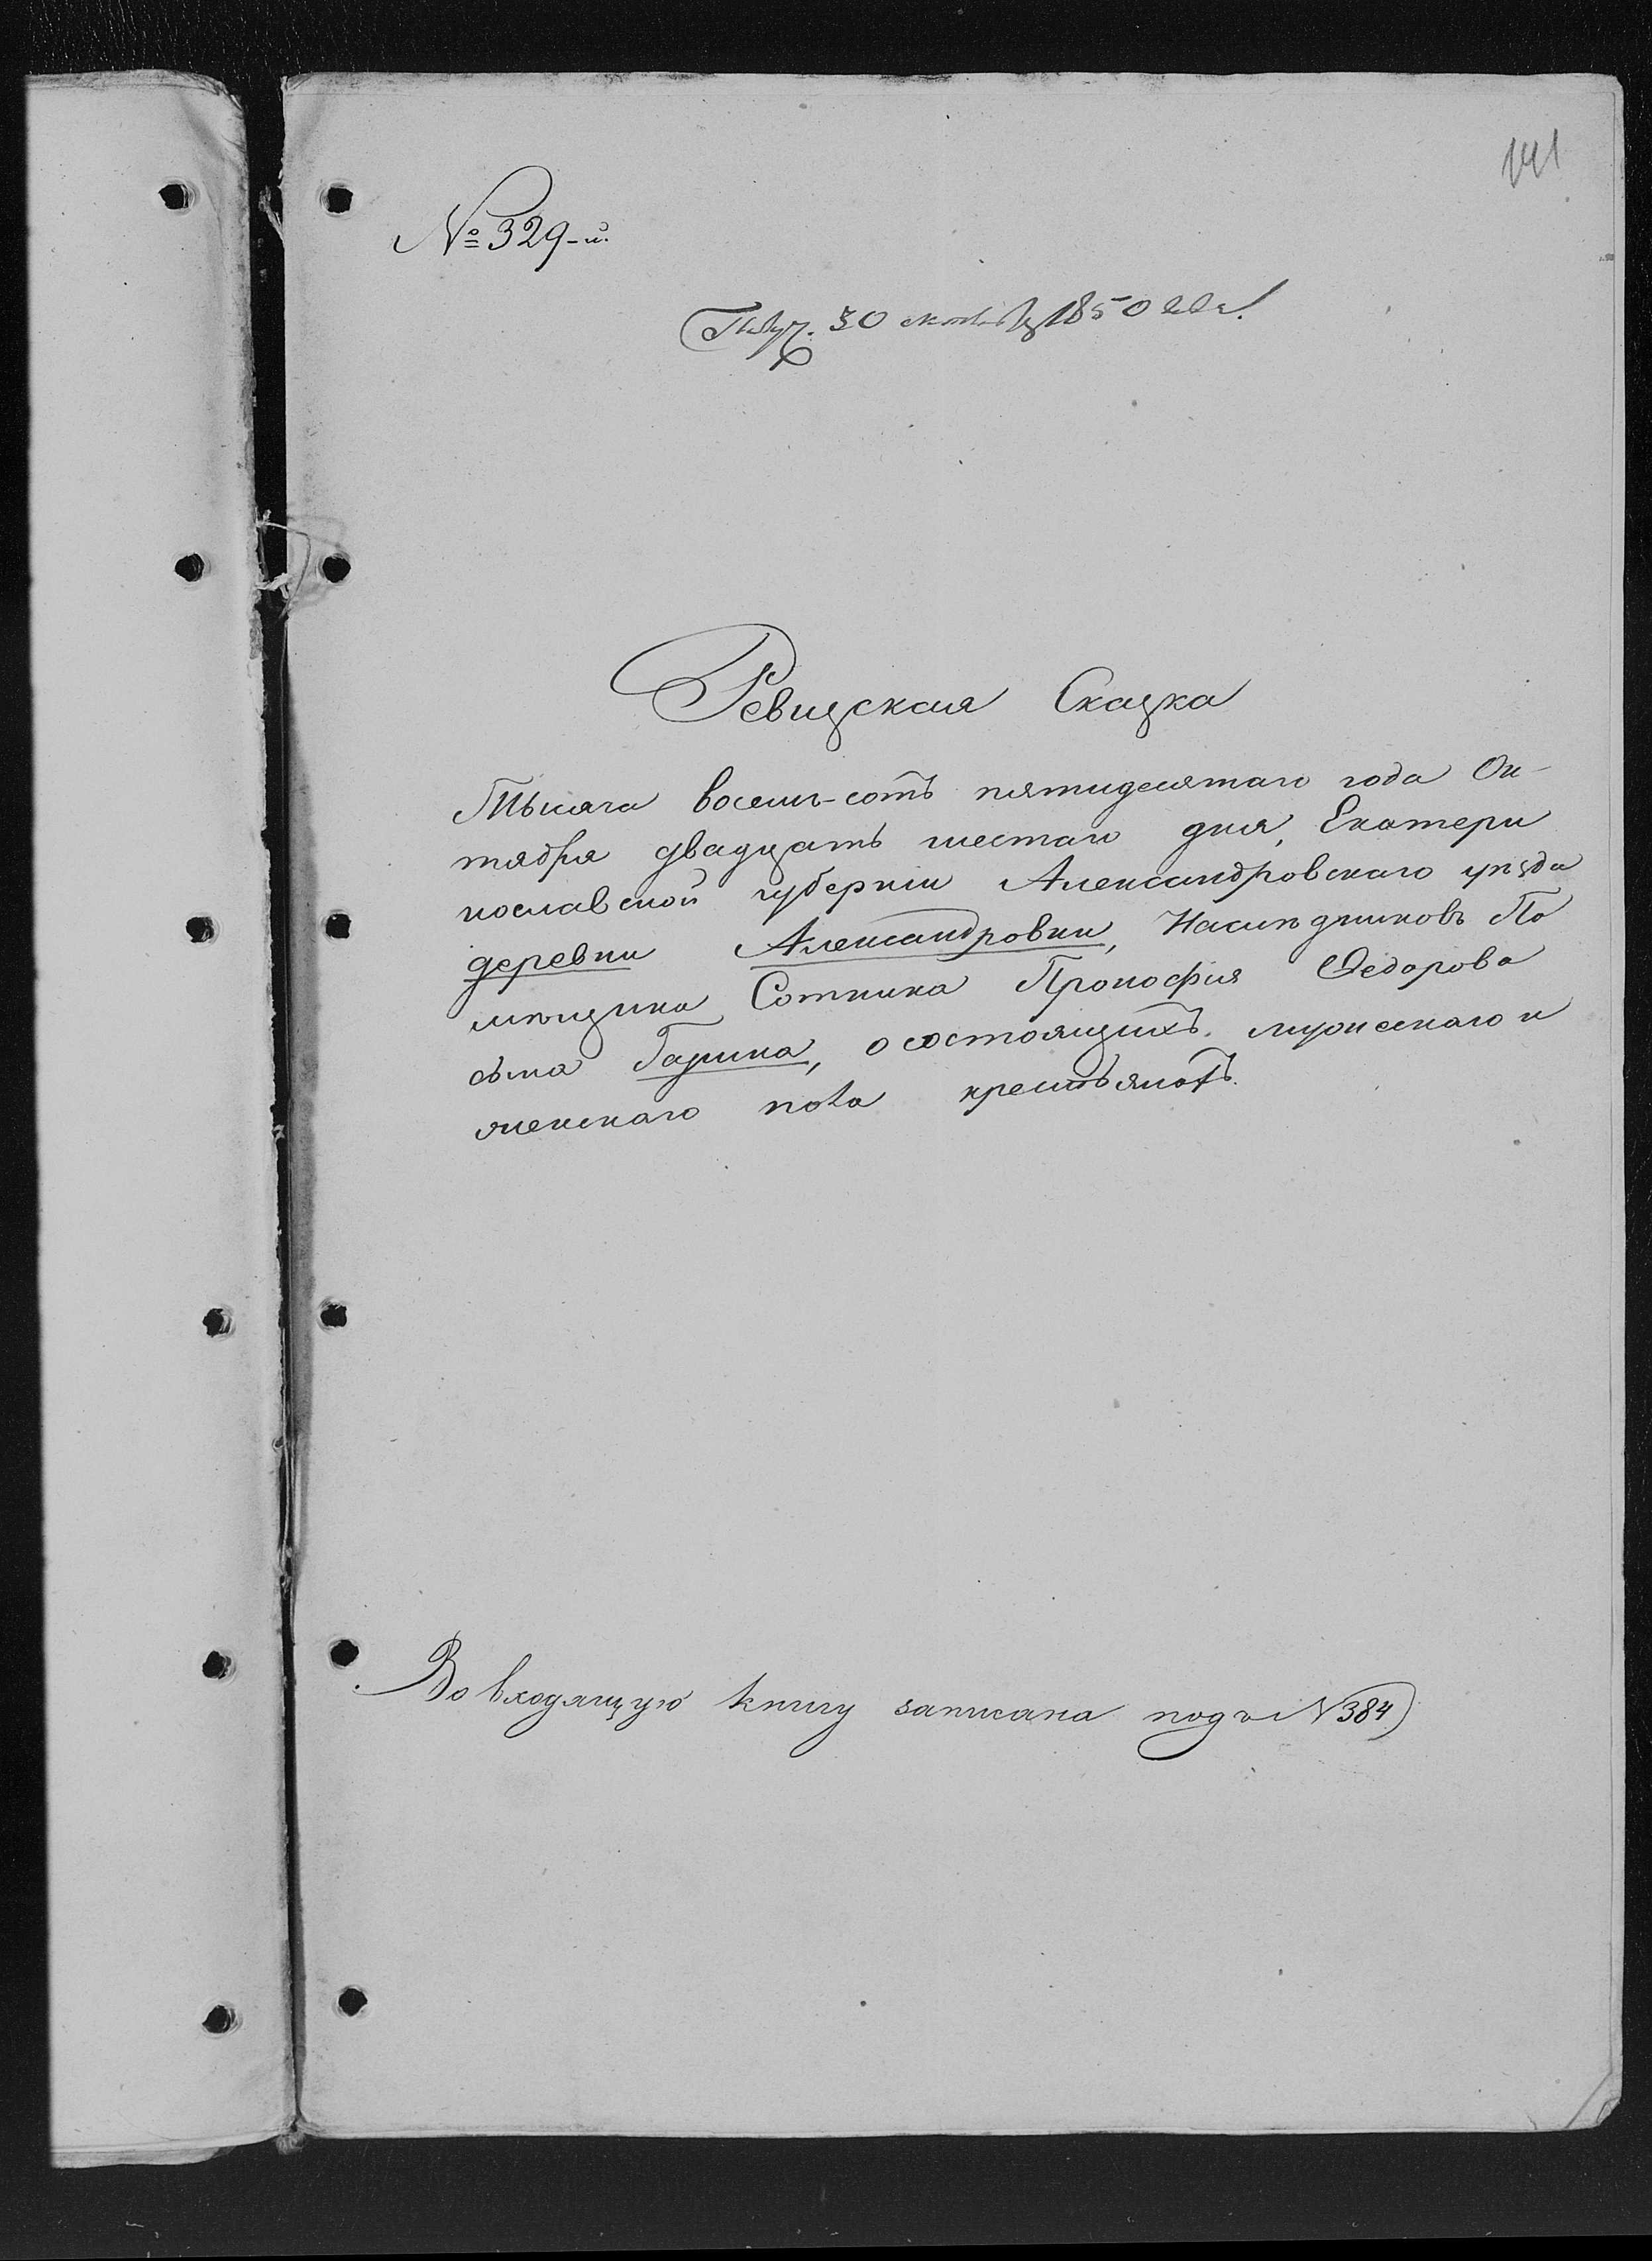 141
№ 329-й.
Получ. 30 октября 1850 года.
Ревизская Сказка
Тысяча восемь-сотъ пятидесятаго года Ок-
тября двадцать шестаго дня, Екатери
нославской губерніи Александровскаго уѣзда
деревни Александровки, Наслѣдниковъ По
мѣщика Сотника Прокофія Федорова
сына Газина, о состоящихъ мужескаго и
женскаго пола крестьянахъ.
Во входящую книгу записана подъ № 384